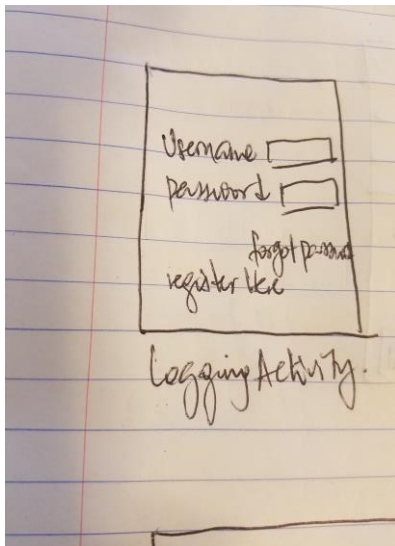 Username
password
forgot password
register Here
Logging Activity.